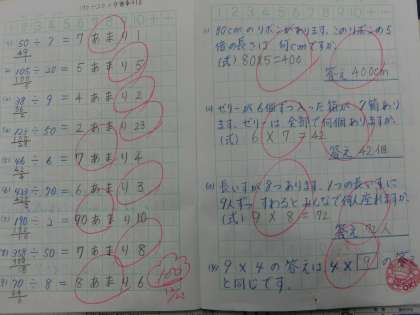 50÷7=7あまり1
49
1
105÷20=5あまり5
100
5
38÷9=4あまり2
36
2
123÷50=2あまり23
100
23
46÷6=7あまり4
42
4
423÷70=6あまり3
420
3
190÷
10
358÷50=7あまり8
350
8
70÷8=8あまり6
64
6
100
80cmのリボンがあります。このリボンの5
倍の長さは何cmですか。
(式) 80×5=400
答え 400cm
ゼリーが6個ずつ入った箱が7箱あり
ます。ゼリーは全部で何個ありますか。
(式) 6×7=42
答え 42個
長いすが8つあります。1つの長いすに
9人ずつすわるとみんなで何人座れますか。
(式) 9×8=72
答え 72人
9×4の答えは4×9の答え
と同じです。